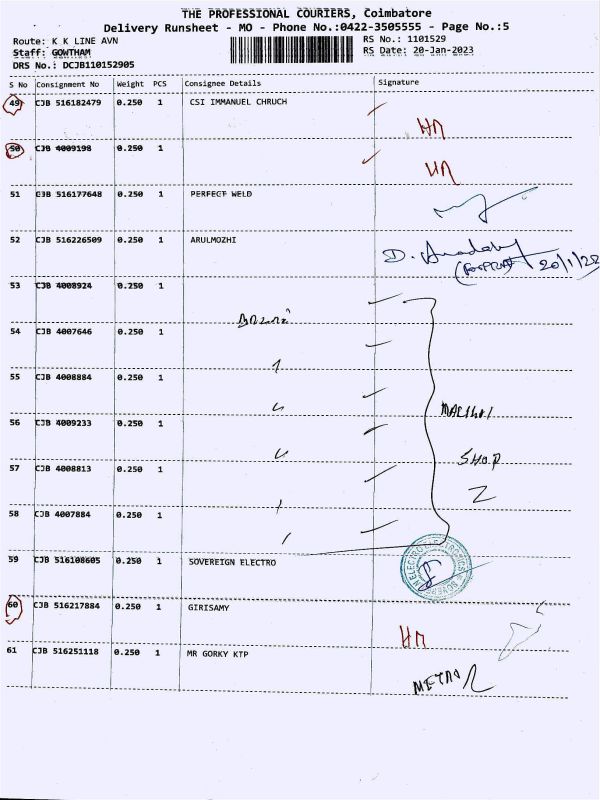 THE PROFESSIONAL COURIERS, Coimbatore
Delivery Runsheet - MO - Phone No.:0422-3505555 - Page No.:5
Route: K K LINE AVN
RS No.: 1101529
Staff: GOWTHAM
RS Date: 20-Jan-2023
DRS No.: DCJB110152905
S No Consignment No Weight PCS Consignee Details Signature
49 CJB 516182479 0.250 1 CSI IMMANUEL CHRUCH
50 CJB 4009198 0.250 1
51 CJB 516177648 0.250 1 PERFECT WELD
52 CJB 516226509 0.250 1 ARULMOZHI
53 CJB 4008924 0.250 1
54 CJB 4007646 0.250 1
55 CJB 4008884 0.250 1
56 CJB 4009233 0.250 1
57 CJB 4008813 0.250 1
SHOP
58 CJB 4007884 0.250 1
59 CJB 516108605 0.250 1 SOVEREIGN ELECTRO
60 CJB 516217884 0.250 1 GIRISAMY
61 CJB 516251118 0.250 1 MR GORKY KTP